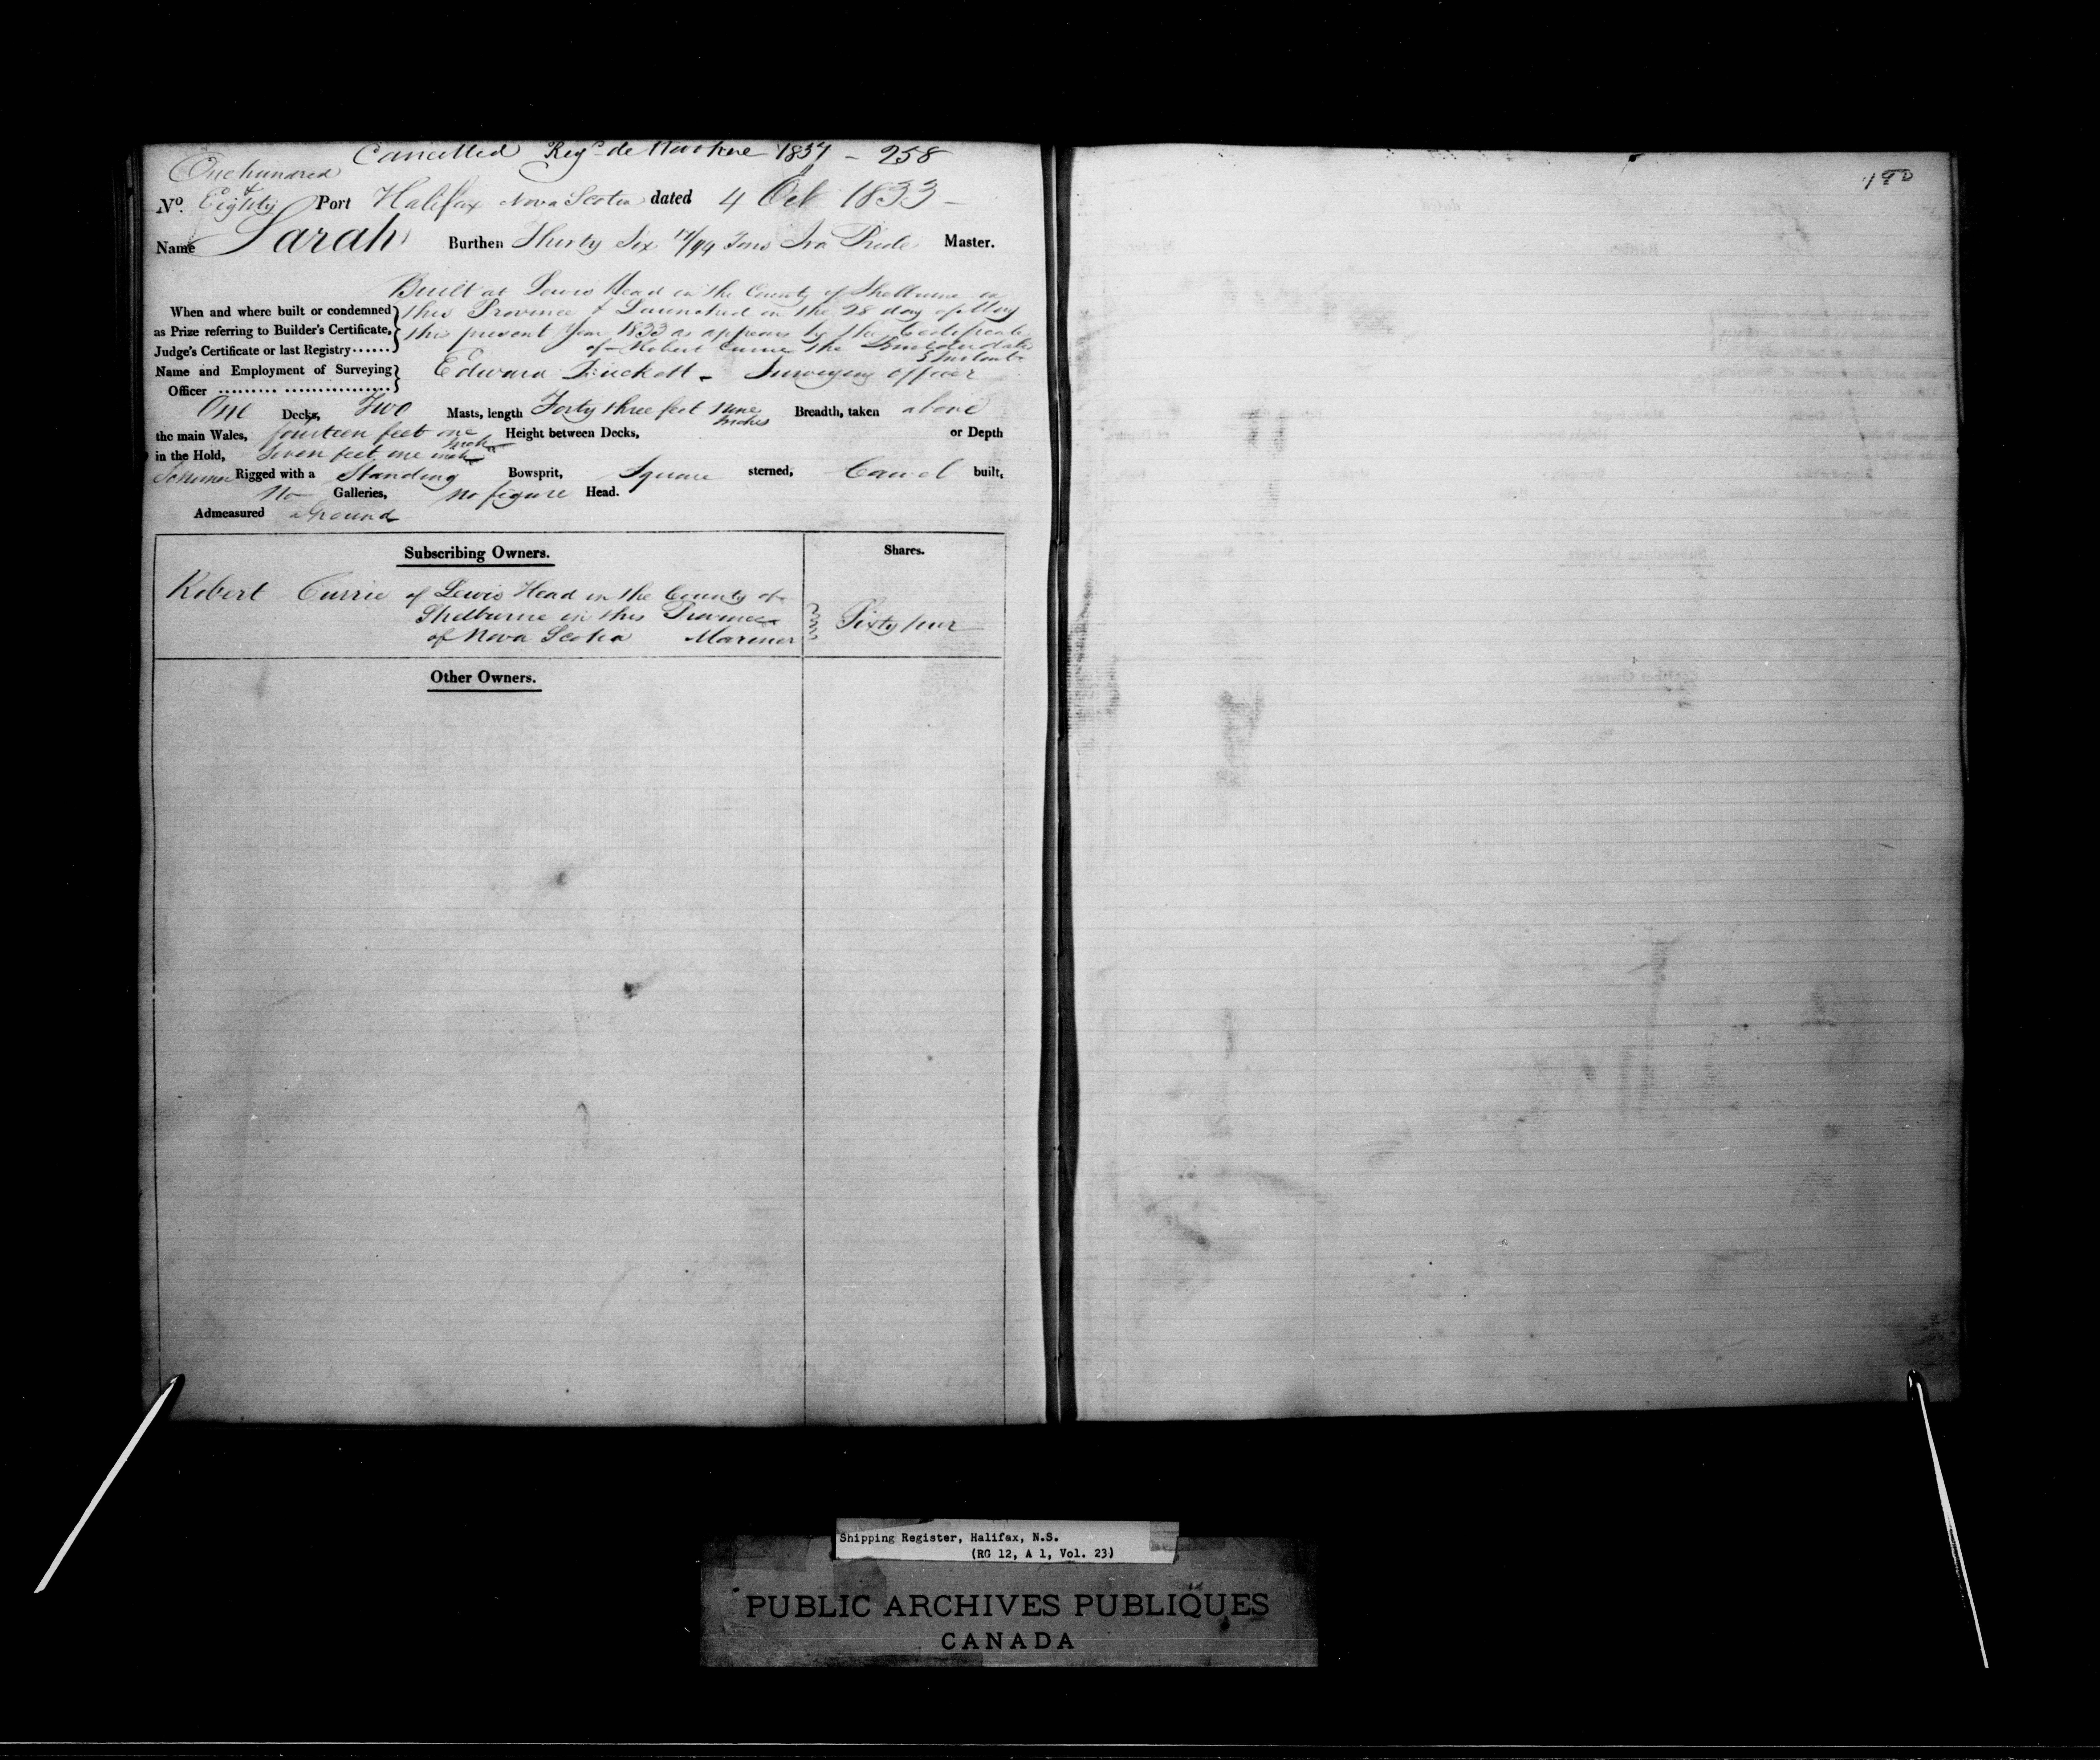 Cancelled Regd de 1837 - 258
One hundred
&
No. Eighty Port Halifax Nova Scotia dated 4 Oct 1833 -
Name Sarah Burthen Thirty Six 14/94 Tons Ira Pride Master.
Built at Lewis Head in the County of Shelburne in
When and where built or condemned this Province & Launched on the 28 day of May
as Prize referring to Builder's Certificate, the present Year 1833 as appears by the Certificate
Judge's Certificate or last Registry...... of Robert Currie the Builder dated
5 Instant
Name and Employment of Surveying Edward Surveying officer
Officer ......... ................
One Decks, Two Masts, length Forty three feet nine inches Breadth, taken above
the main Wales, fourteen feet one inch Height between Decks, or Depth
in the Hold, Seven feet one inch
Schooner Rigged with a Standing Bowsprit, Square sterned, Carvel built,
No Galleries, no figure Head.
Admeasured aground
Subscribing Owners. Shares.
Robert Currie of Lewis Head in the County of
Shelburne in this Province
of Nova Scotia Mariner Sixty four
Other Owners.
180
Shipping Register, Halifax, N.S.
(RG 12, A 1, Vol. 23)
PUBLIC ARCHIVES PUBLIQUES
CANADA